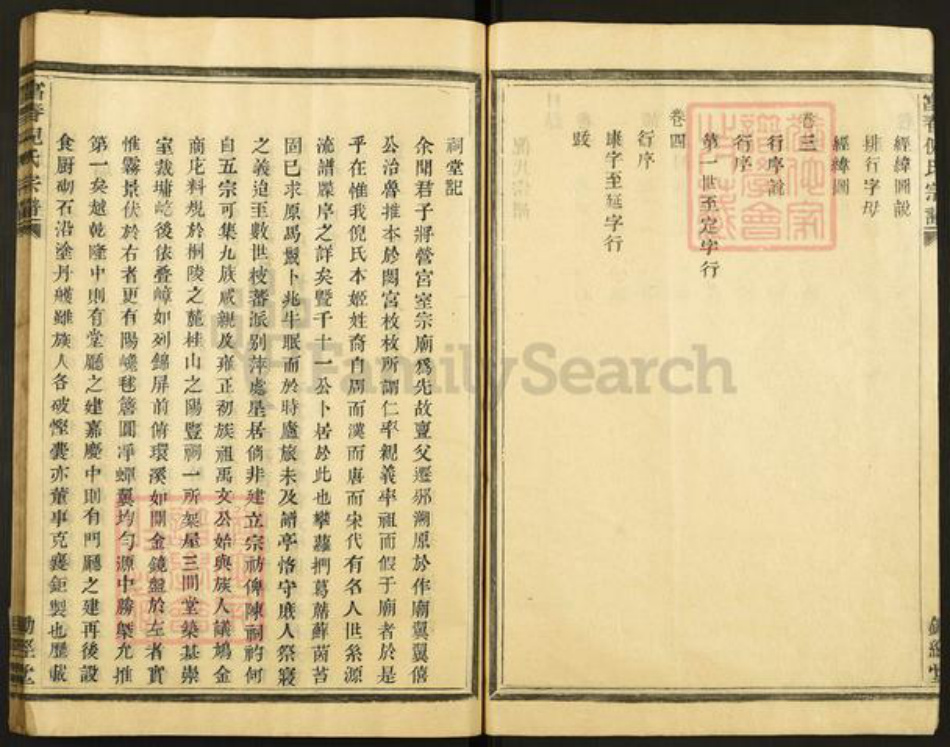 經緯圖說
排行字母
經緯圖
卷三
行序說
行序
第一世至定字行
卷四
行序
康字至延字行
跋
祠堂記
余聞君子將營宮室宗廟爲先故亶父遷邠溯原於作廟翼翼僖
公治魯推本於閟宮枚枚所謂仁率親義率祖而假于廟者於是
乎在惟我倪氏本姬姓裔自周而漢而唐而宋代有名人世系源
流譜牒序之詳矣暨千十一公卜居於此也攀蘿捫葛蓆蘚茵苔
固已求原馬鬣卜兆牛眠而於時廬旅未及譜亭恪守庶人祭寢
之義迨至數世枝蕃派別萍處星居倘非建立宗祊俾陳祠礿何
自五宗可集九族咸親及雍正初族祖禹文公始與族人議鳩金
商庀料規於桐陵之麓桂山之陽豎祠一所架屋三間堂築基崇
室裁墉屹後依疊嶂如列錦屏前俯環溪如開金鏡盤於左者實
惟霧景伏於右者更有陽巉毬簷圓淨蟬翼均勻源中勝槩允推
第一矣越乾隆中則有堂廳之建嘉慶中則有門廳之建再後設
食厨砌石沿塗丹雘雖族人各破慳囊亦董事克襄鉅製也歷載
富春倪氏宗譜
FamilySearch